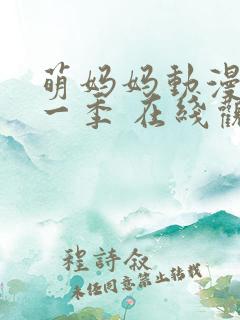 萌妈妈動漫
一季 在线觀
程詩叙
未经同意禁止转载